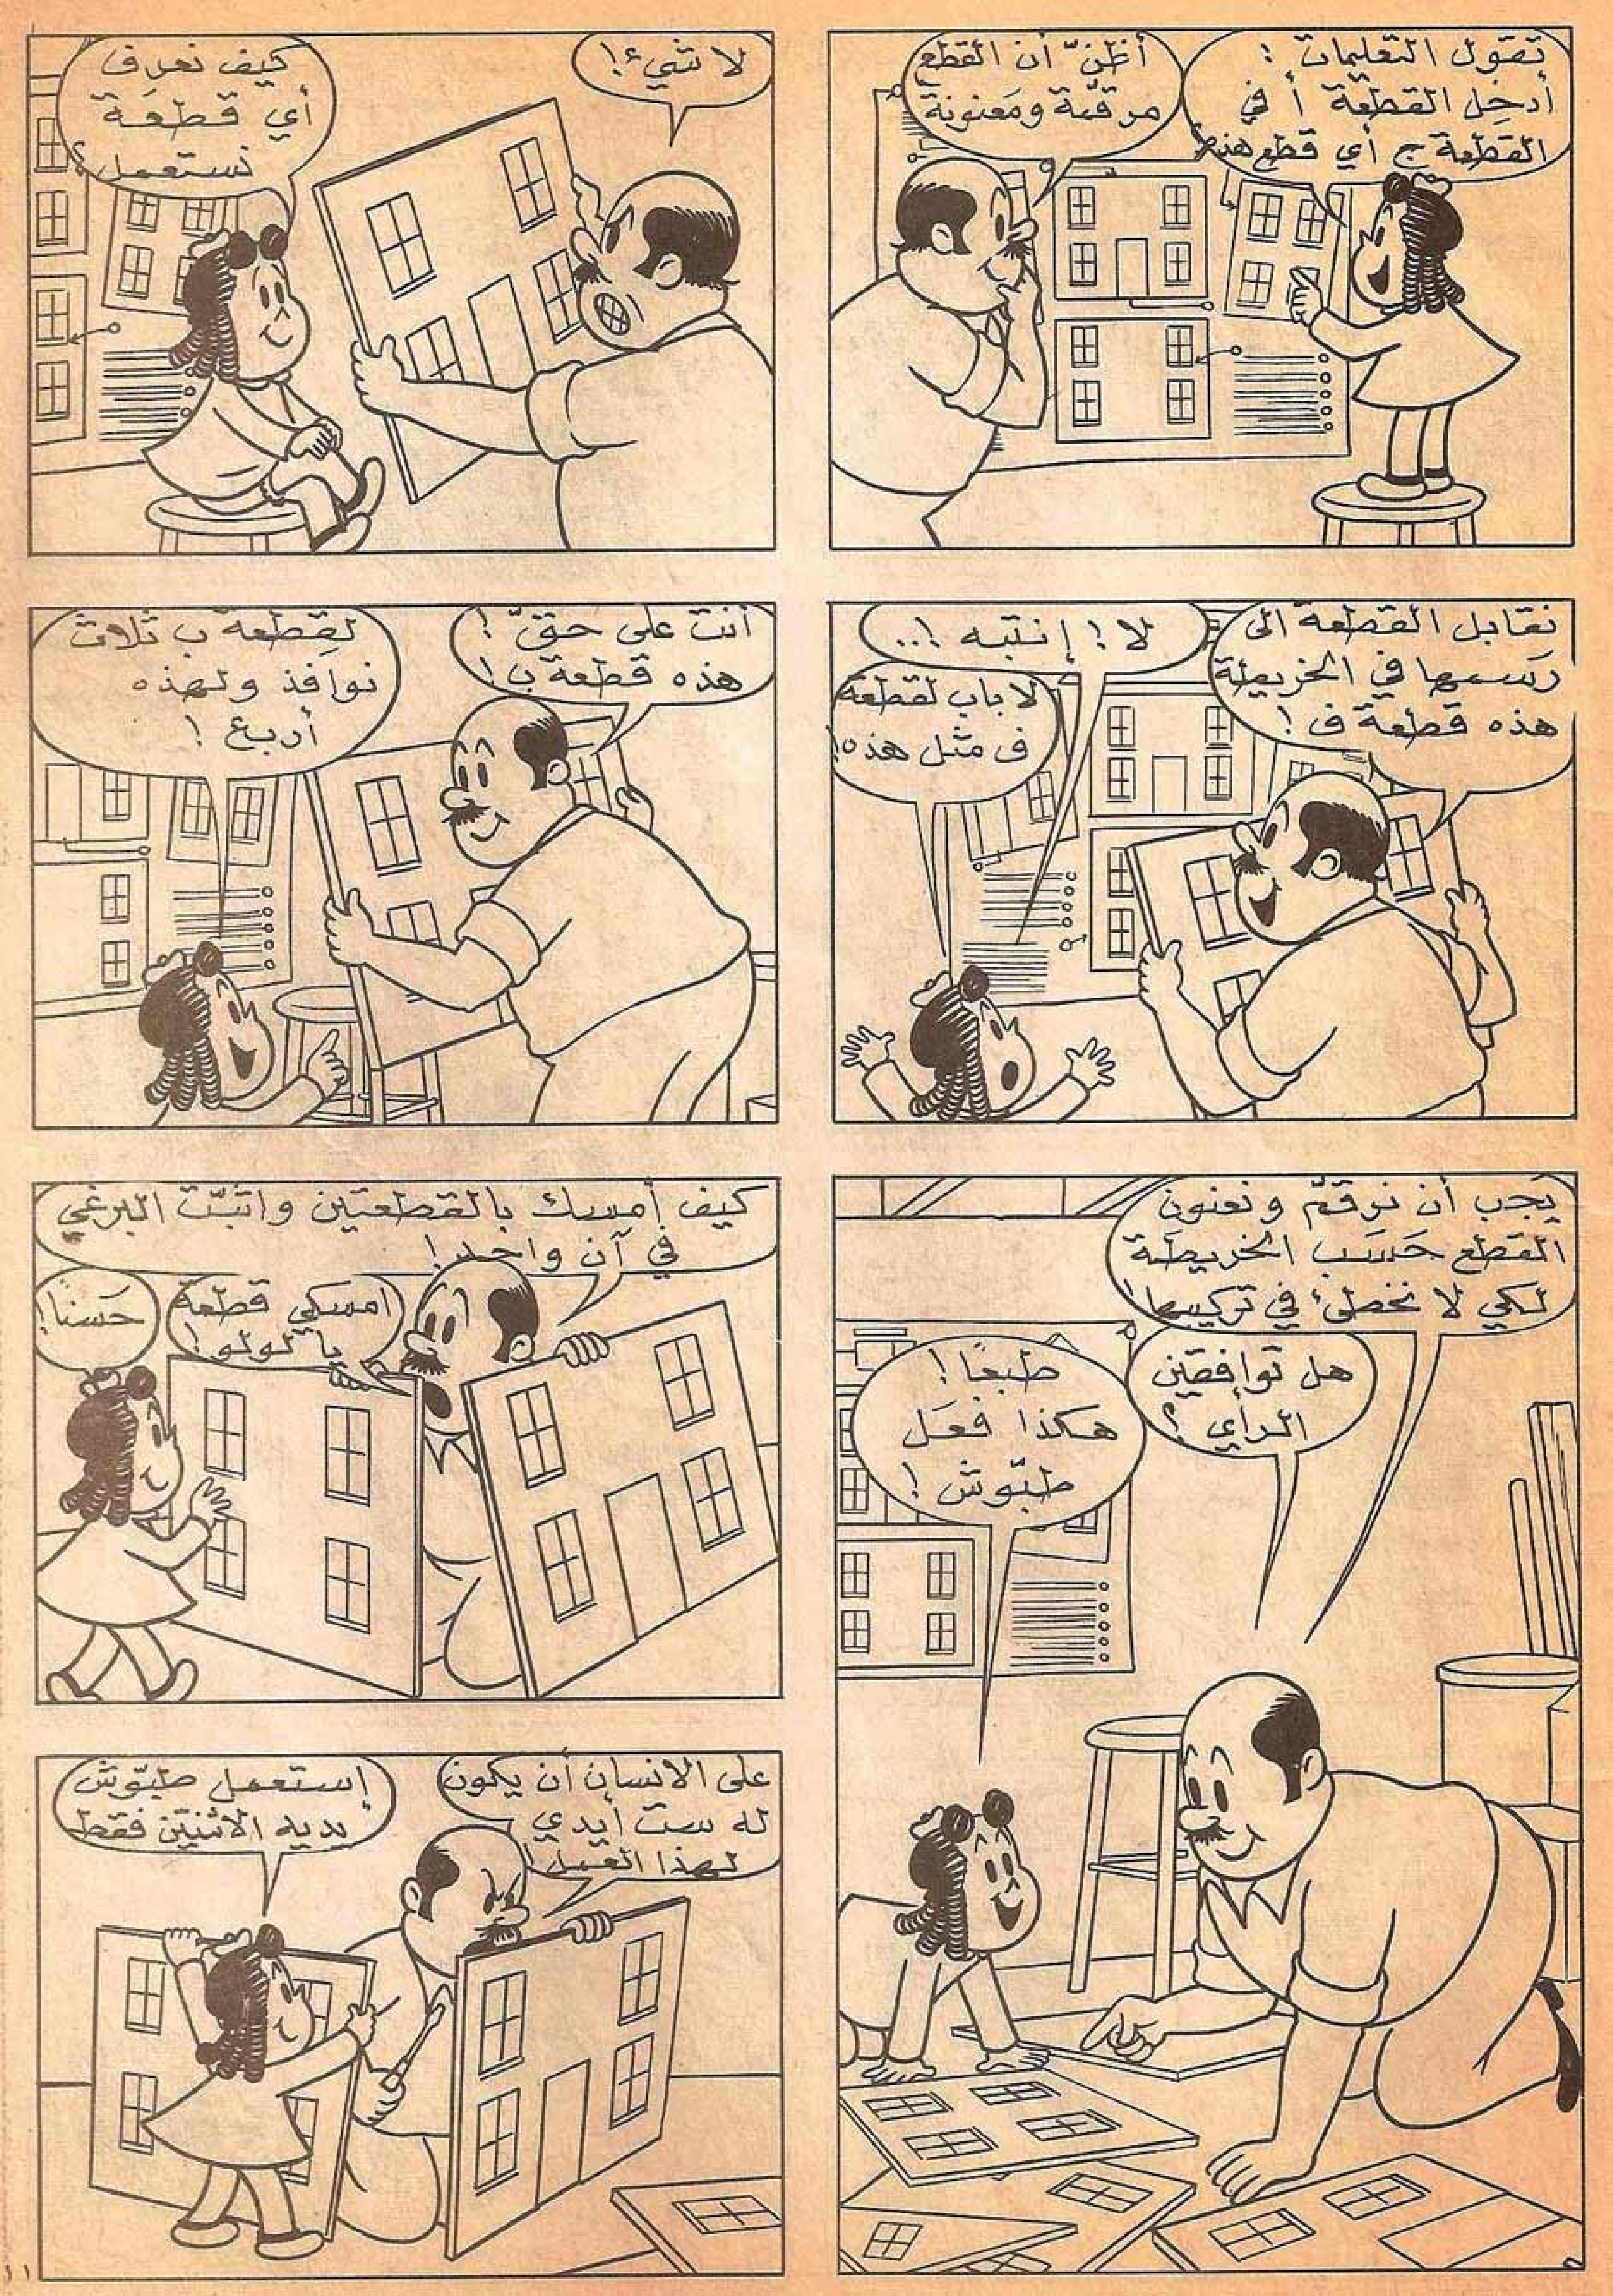 تقول التعليمات :
أدخِل القطعة أ في
القطعة ج أي قطع هذه؟
أظنّ أن القطع
مرقّمة ومَعنونة
لا شيء!
كيف نعرف
أي قطعَة
نستعمل؟
نقابل القطعة الى
رَسمها في الخريطة
هذه قطعة ف !
لا! إنتبه !..
لا باب لقطعة
ف مثل هذه!
أنت على حقّ !
هذه قطعة ب !
لقِطعة ب ثلاث
نوافذ ولهذه
أربع !
يَجب أن نرقّم ونعنون
القطع حَسَب الخريطَة
لكي لا نخطئ في تركيبها!
هل توافقين
الرأي ؟
طبعًا !
هكذا فعَل
طبّوش !
كيف أمسك بالقطعتين واثبّت البرغي
في آن واحد!
امسكي قطعة
يا لولو!
حَسنًا!
على الانسان أن يكون
له ست أيدي
لهذا العمل!
إستعمل طبّوش
يديه الاثنتين فقط
١١